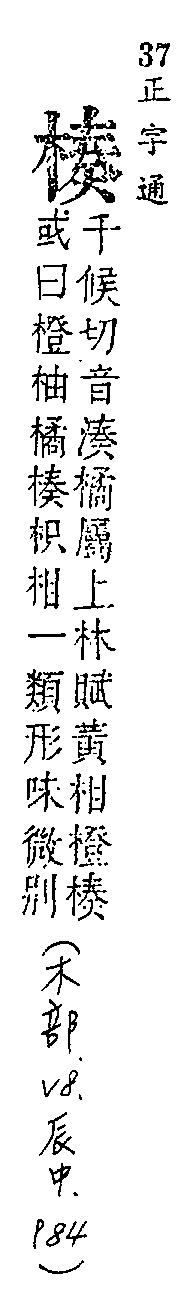 37正字通
楱
千候切音湊橘屬上林賦黃柑橙楱
或曰橙柚橘楱枳柑一類形味微別
(木部. V8. 辰中. P84)